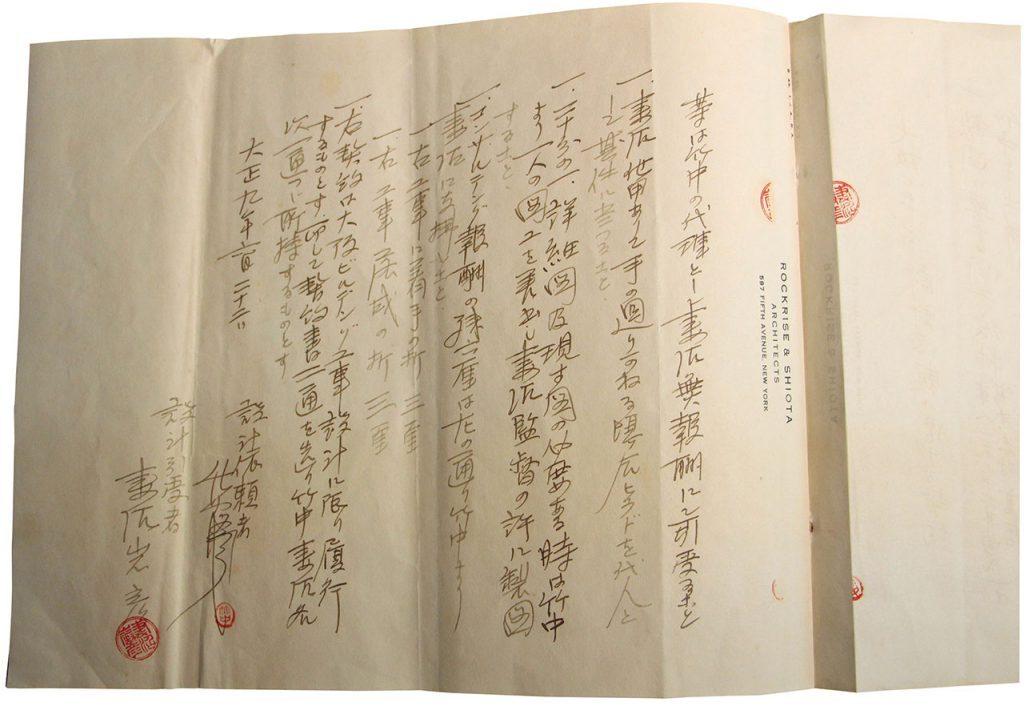 ROCKRISE & SHIOTA
ARCHITECTS
597 FIFTH AVENUE, NEW YORK
等は竹中の代理とし妻沼無報酬にて引受くること
一、妻沼他用ありて手の廻りかねる場合
を代人と
し其任に当ること、
一、二十分の一、詳細図及現寸図の必要ある時は竹中
より一人の図工を差出し妻沼監督の許に製図
すること、
一、コンサルテング報酬の残は左の通り竹中より
妻沼に支拂ふこと、
一、右工事に着手の折 三
一、右工事落成の折 三
一、右契約は大阪ビルデング工事設計に限り履行
するものとす而して契約書は二通を造り竹中妻沼各
以一通つゝ所持するものとす
大正九年
二十三日
設計依頼者
設計引受者
妻沼岩彦